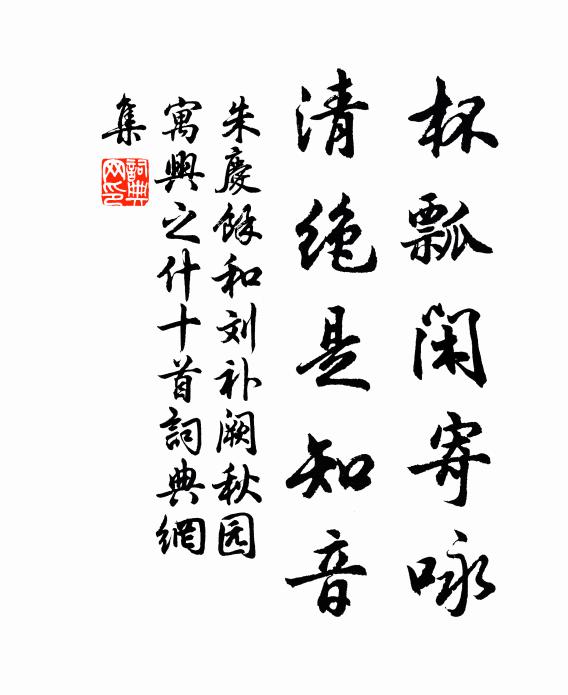 杯瓢闲寄咏
清绝是知音
朱慶餘和刘补阙秋园
寓興之什十首詞典網
集
詞典网印